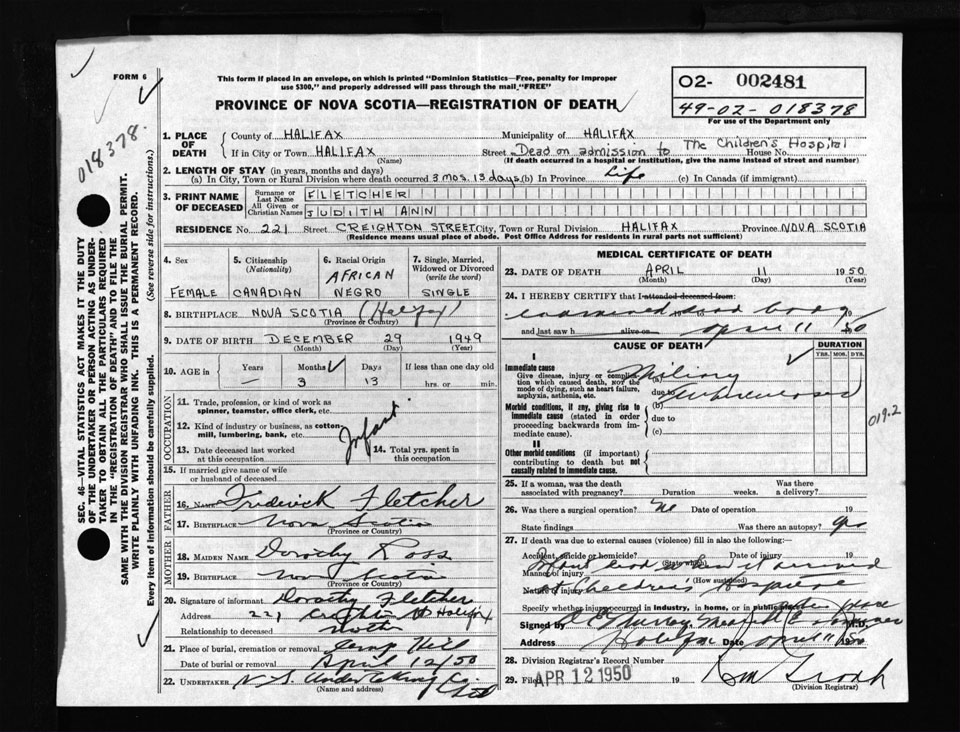 FORM 6
This form if placed in an envelope, on which is printed "Dominion Statistics—Free, penalty for improper
use $300," and properly addressed will pass through the mail "FREE"
PROVINCE OF NOVA SCOTIA—REGISTRATION OF DEATH
02- 002481
49-02-018378
For use of the Department only
018378.
SEC. 46—VITAL STATISTICS ACT MAKES IT THE DUTY
OF THE UNDERTAKER OR PERSON ACTING AS UNDER-
TAKER TO OBTAIN ALL THE PARTICULARS REQUIRED
IN THE "REGISTRATION OF DEATH" AND TO FILE THE
SAME WITH THE DIVISION REGISTRAR WHO SHALL ISSUE THE BURIAL PERMIT.
WRITE PLAINLY WITH UNFADING INK. THIS IS A PERMANENT RECORD.
Every item of information should be carefully supplied. (See reverse side for instructions.)
1. PLACE OF DEATH
County of HALIFAX Municipality of HALIFAX
If in City or Town HALIFAX (Name) Street Dead on admission to The Children's Hospital House No.
(If death occurred in a hospital or institution, give the name instead of street and number)
2. LENGTH OF STAY (in years, months and days)
(a) In City, Town or Rural Division where death occurred 3 mos. 13 days (b) In Province Life (c) In Canada (if immigrant)
3. PRINT NAME OF DECEASED
Surname or Last Name FLETCHER
All Given or Christian Names JUDITH ANN
RESIDENCE No. 221 Street CREIGHTON STREET City, Town or Rural Division HALIFAX Province NOVA SCOTIA
(Residence means usual place of abode. Post Office Address for residents in rural parts not sufficient)
4. Sex FEMALE
5. Citizenship (Nationality) CANADIAN
6. Racial Origin AFRICAN NEGRO
7. Single, Married, Widowed or Divorced (write the word) SINGLE
8. BIRTHPLACE NOVA SCOTIA (Halifax)
(Province or Country)
9. DATE OF BIRTH DECEMBER 29 1949
(Month) (Day) (Year)
10. AGE in Years — Months 3 Days 13 If less than one day old hrs. or min.
OCCUPATION
11. Trade, profession, or kind of work as
spinner, teamster, office clerk, etc.
12. Kind of industry or business, as cotton-
mill, lumbering, bank, etc.
Infant
13. Date deceased last worked
at this occupation
14. Total yrs. spent in
this occupation
15. If married give name of wife
or husband of deceased
FATHER
16. Name Frederick Fletcher
17. Birthplace Nova Scotia
(Province or Country)
MOTHER
18. MAIDEN NAME Dorothy Ross
19. BIRTHPLACE Nova Scotia
(Province or Country)
20. Signature of informant Dorothy Fletcher
Address 221 Creighton St Halifax
Relationship to deceased
21. Place of burial, cremation or removal Camp Hill
Date of burial or removal April 12/50
22. UNDERTAKER N.S. Undertaking Co. Ltd
(Name and address)
MEDICAL CERTIFICATE OF DEATH
23. DATE OF DEATH APRIL 11 1950
(Month) (Day) (Year)
24. I HEREBY CERTIFY that I attended deceased from:
examined dead body 19
and last saw h alive on April 11 50
CAUSE OF DEATH DURATION
YRS. MOS. DYS.
I
Immediate cause
Give disease, injury or compli-
cation which caused death, NOT the
mode of dying, such as heart failure,
asphyxia, asthenia, etc.
(a) Miliary
due to Tuberculosis
Morbid conditions, if any, giving rise to
immediate cause (stated in order
proceeding backwards from im-
mediate cause).
(b)
due to
(c)
019.2
II
Other morbid conditions (if important)
contributing to death but not
causally related to immediate cause.
25. If a woman, was the death
associated with pregnancy? Duration weeks. Was there
a delivery?
26. Was there a surgical operation? No Date of operation 19
State findings Was there an autopsy? Yes
27. If death was due to external causes (violence) fill in also the following:
Accident, suicide or homicide? Date of injury 19
(State which)
Manner of injury
(How sustained)
Nature of injury
Infant dead when it arrived
at Children's Hospital
Specify whether injury occurred in industry, in home, or in public place
Signed by Murray M.D.
Address Halifax Date April 11 1950
28. Division Registrar's Record Number
29. Filed APR 12 1950 19
(Division Registrar)